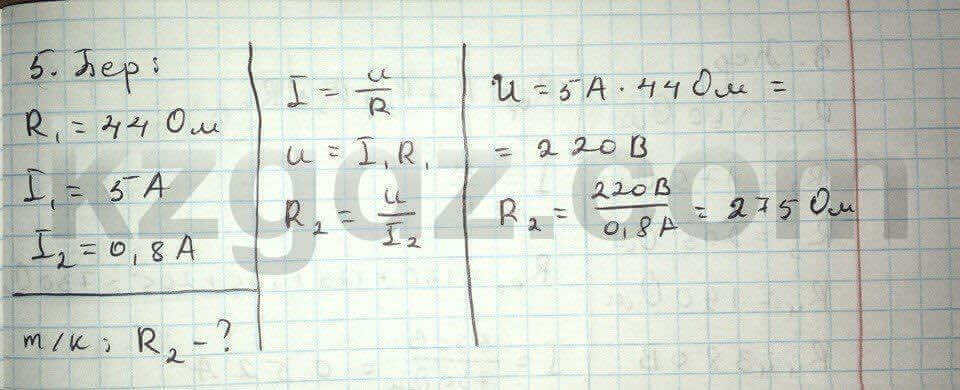 5. Бер:
R₁ = 44 Ом
I₁ = 5А
I₂ = 0,8 А
т/к: R₂ - ?
I = u/R
u = I₁R₁
R₂ = u/I₂
U = 5А · 44 Ом =
= 220 В
R₂ = 220В/0,8А = 275 Ом
kzgdz.com